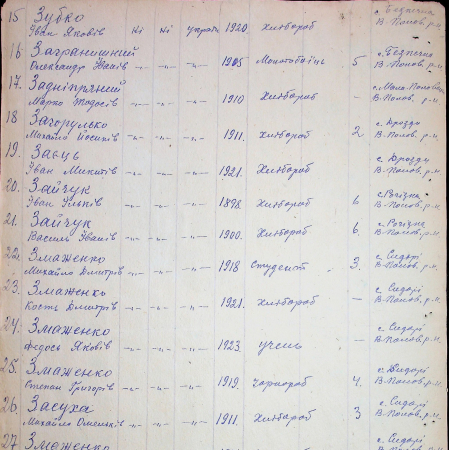 15 Зубко
Іван Яковів ні ні україн. 1920. хлібороб с. Безпечна В-Попов. р-н.
16. Загранишний
Олександр Іванів -"- -"- -"- 1905 Молотобоїць 5 с. Безпечна В-Попов. р-н.
17. Задніпряний
Марко Тодосів -"- -"- -"- 1910 Хлібороб — с. Мала-Половецьк. В-Попов. р-н.
18 Загорулько
Михайло Йосипів -"- -"- -"- 1911. хлібороб 2 с. Дрозди В-Полов. р-н.
19. Заєць
Іван Микитів -"- -"- -"- 1921. Хлібороб с. Дрозди В-Полов. р-н.
20. Зайчук
Іван Ільків -"- -"- -"- 1898. хлібороб 6 с. Рогізна В-Попов. р-н.
21. Зайчук
Василь Іванів -"- -"- -"- 1900. Хлібороб 6. с. Рогізна В-Попов. р-н.
22. Змаженко
Михайло Дмитрів -"- -"- -"- 1918 студент 3. с. Сидорі В-Попов. р-н.
23. Змаженко
Кость Дмитрів -"- -"- -"- 1921. хлібороб — с. Сидорі В-Попов. р-н.
24. Змаженко
Федось Яковів -"- -"- -"- 1923. учень — с. Сидорі В-Попов. р-н.
25. Змаженко
Степан Григорів -"- -"- -"- 1919. чорнороб 4. с. Сидорі В-Попов. р-н.
26. Засуха
Михайло Омельків -"- -"- -"- 1911. Хлібороб 3 с. Сидорі В-Попов. р-н.
27 Змаженко с. Сидорі